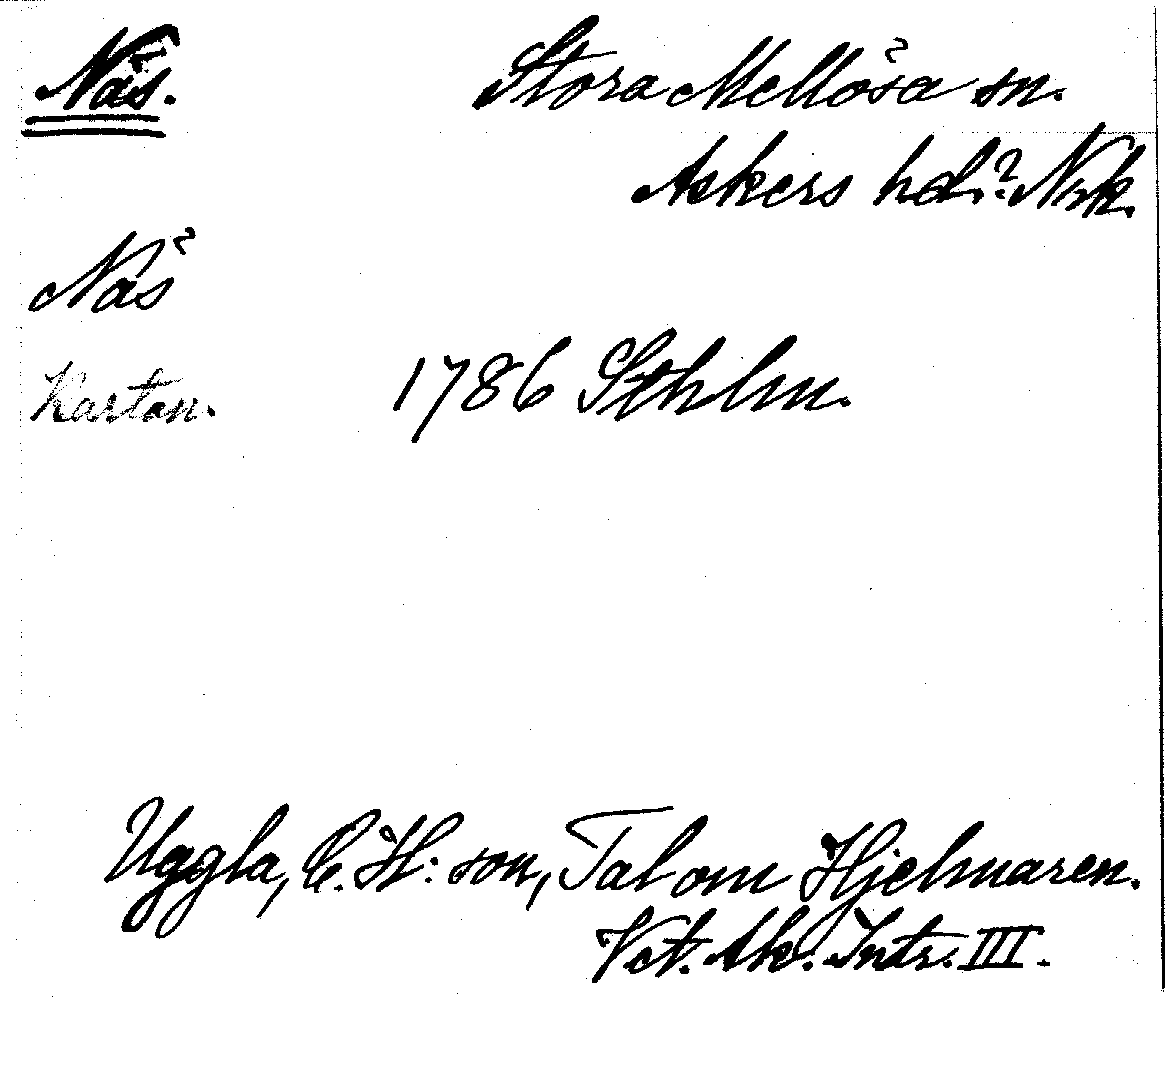 Näs.
Stora Mellösa sn.
Askers hd. Nrk.
Näs
Kartan. 1786 Sthlm.
Uggla, C. H:son, Tal om Hjelmaren.
Vet. Ak. Intr. III.